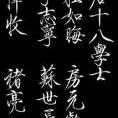 唐十八學士
杜如晦 房玄齡
于志寧 蘇世長
薛收 褚亮